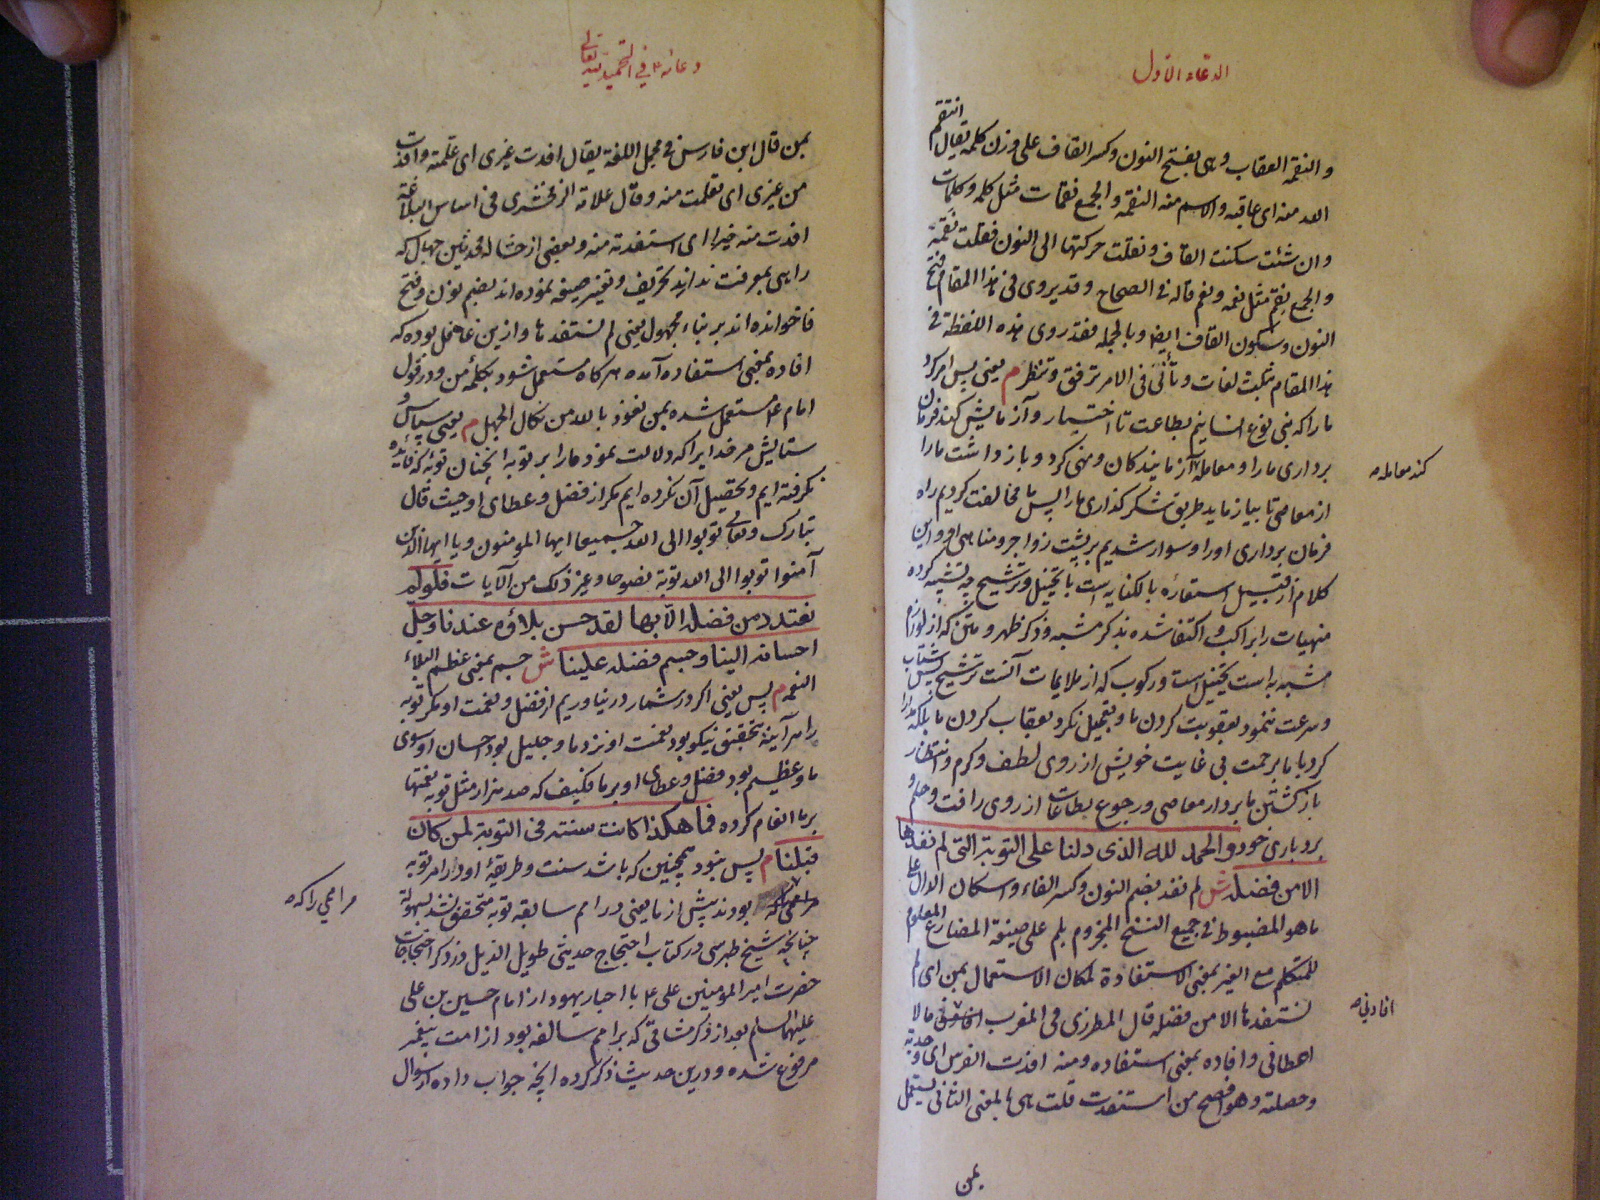 الدعاء الاول
انتقم
و النقمة العقاب و هى بفتح النون و كسر القاف على وزن كلمه يقال
الله منه اى عاقبه و الاسم منه النقمة و الجمع نقمات مثل كلمه و كلمات
و ان شئت سكنت القاف و نقلت حركتها الى النون فقلت نقمة
و الجمع نقم مثل نعمه و نعم قاله فى الصحاح و قد يروى فى هذا المقام فتح
النون و سكون القاف ايضا و بالجمله فقد روى هذه اللفظة فى
هذا المقام بثلث لغات و تأنى فى الامر ترفق و تنظر م يعنى پس امر كرد
ما را كه بنى نوع انسانيم بطاعت تا اختبار و آزمايش كند فرمان
بردارى ما را و معامله آزمايندكان و نهى كرد و باز داشت ما را
كند معامله صه
از معاصى تا بيازمايد طريق شكر كذارى ما را پس ما مخالفت كرديم راه
فرمان بردارى او را و سوار شديم بر پشت زواجر و مناهى او و اين
كلام از قبيل استعاره بالكنايه است با تخييل و ترشيح چه تشبيه كرده
منهيات را براكب و اكتفا شده بذكر مشبه و ذكر ظهر و متن كه از لوازم
مشبه به است تخييل است و ركوب كه از ملايمات آنست ترشيح پس شتاب
و سرعت ننمود بعقوبت كردن ما و تعجيل نكرد بعقاب كردن ما بلكه مدارا
كرد با ما برحمت بى غايت خويش از روى لطف و كرم و انتظار
باز كشتن ما بردار معاصى و رجوع بطاعات از روى رافت و حلم و
بردبارى خود و الحمد لله الذى دلنا على التوبة التى لم نفدها
الا من فضله ش لم نفد بضم النون و كسر الفاء و اسكان الدال على
ما هو المضبوط فى جميع النسخ المجزوم بلم على صيغة المضارع المعلوم
للمتكلم مع الغير بمعنى الاستفادة لمكان الاستعمال بمن اى لم
نستفدها الا من فضله قال المطرزى فى المغرب افادنى مالا
افادنى صه
اعطانى و افاده بمعنى استفاده و منه افدت الفرس اى وجدته
و حصلته و هو افصح من استفدت قلت هى بالمعنى الثانى يستعمل
بمن
دعائه ع فى التحميد لله تعالى
بمن قال ابن فارس فى مجمل اللغة يقال افدت غيرى اى علمته و افدت
من غيرى اى تعلمت منه و قال علامه الزمخشرى فى اساس البلاغة
افدت منه خيرا اى استفدته منه و بعضى از حثاله محدثين جهال كه
راهى بمعرفت ندارند تحريف و تغيير صيغه نموده اند بضم نون و فتح
فا خوانده اند بر بناء مجهول يعنى لم نستفدها و ازين غافل بوده كه
افاده بمعنى استفاده آمده هر كاه مستعمل شود بكلمه من و در قول
امام ع مستعمل شده بمن نعوذ بالله من نكال الجهل م يعنى سپاس و
ستايش مر خدايرا كه دلالت نمود ما را بر توبه آنچنان توبه كه فايده
نكرفته ايم و تحصيل آن نكرده ايم مكر از فضل و عطاى او حيث قال
تبارك و تعالى توبوا الى الله جميعا ايها المؤمنون و يا ايها الذين
آمنوا توبوا الى الله توبة نصوحا و غير ذلك من الآيات فلو لم
نعتدد من فضله الا بها لقد حسن بلاؤه عندنا و جل
احسانه الينا و جسم فضله علينا ش جسم بمعنى عظم البلاء
النعمه م پس يعنى اكر در شمار در نياوريم از فضل و نعمت او مكر توبه
را هر آينه بتحقيق نيكو بود نعمت او نزد ما و جليل بود احسان او بسوى
ما و عظيم بود فضل و عطاى او بر ما فكيف كه صد هزار مثل توبه نعمتها
بر ما انعام كرده فما هكذا كانت سنته فى التوبة لمن كان
قبلنا م پس نبود همچنين كه باشد سنت و طريقۀ او در امر توبه
بودند پيش از ما يعنى در امم سابقه توبه متحقق نشد بسهولة
مر امى را كه صه
چنانچه شيخ طبرسى در كتاب احتجاج حديثى طويل الذيل در ذكر احتجاجات
حضرت امير المؤمنين على ع با احبار يهود از امام حسين بن على
عليهما السلم بعد از ذكر مشاقى كه بر امم سالفه بود از امت پيغمبر
مرفوع شده و درين حديث ذكر كرده آنچه جواب داده از سوال